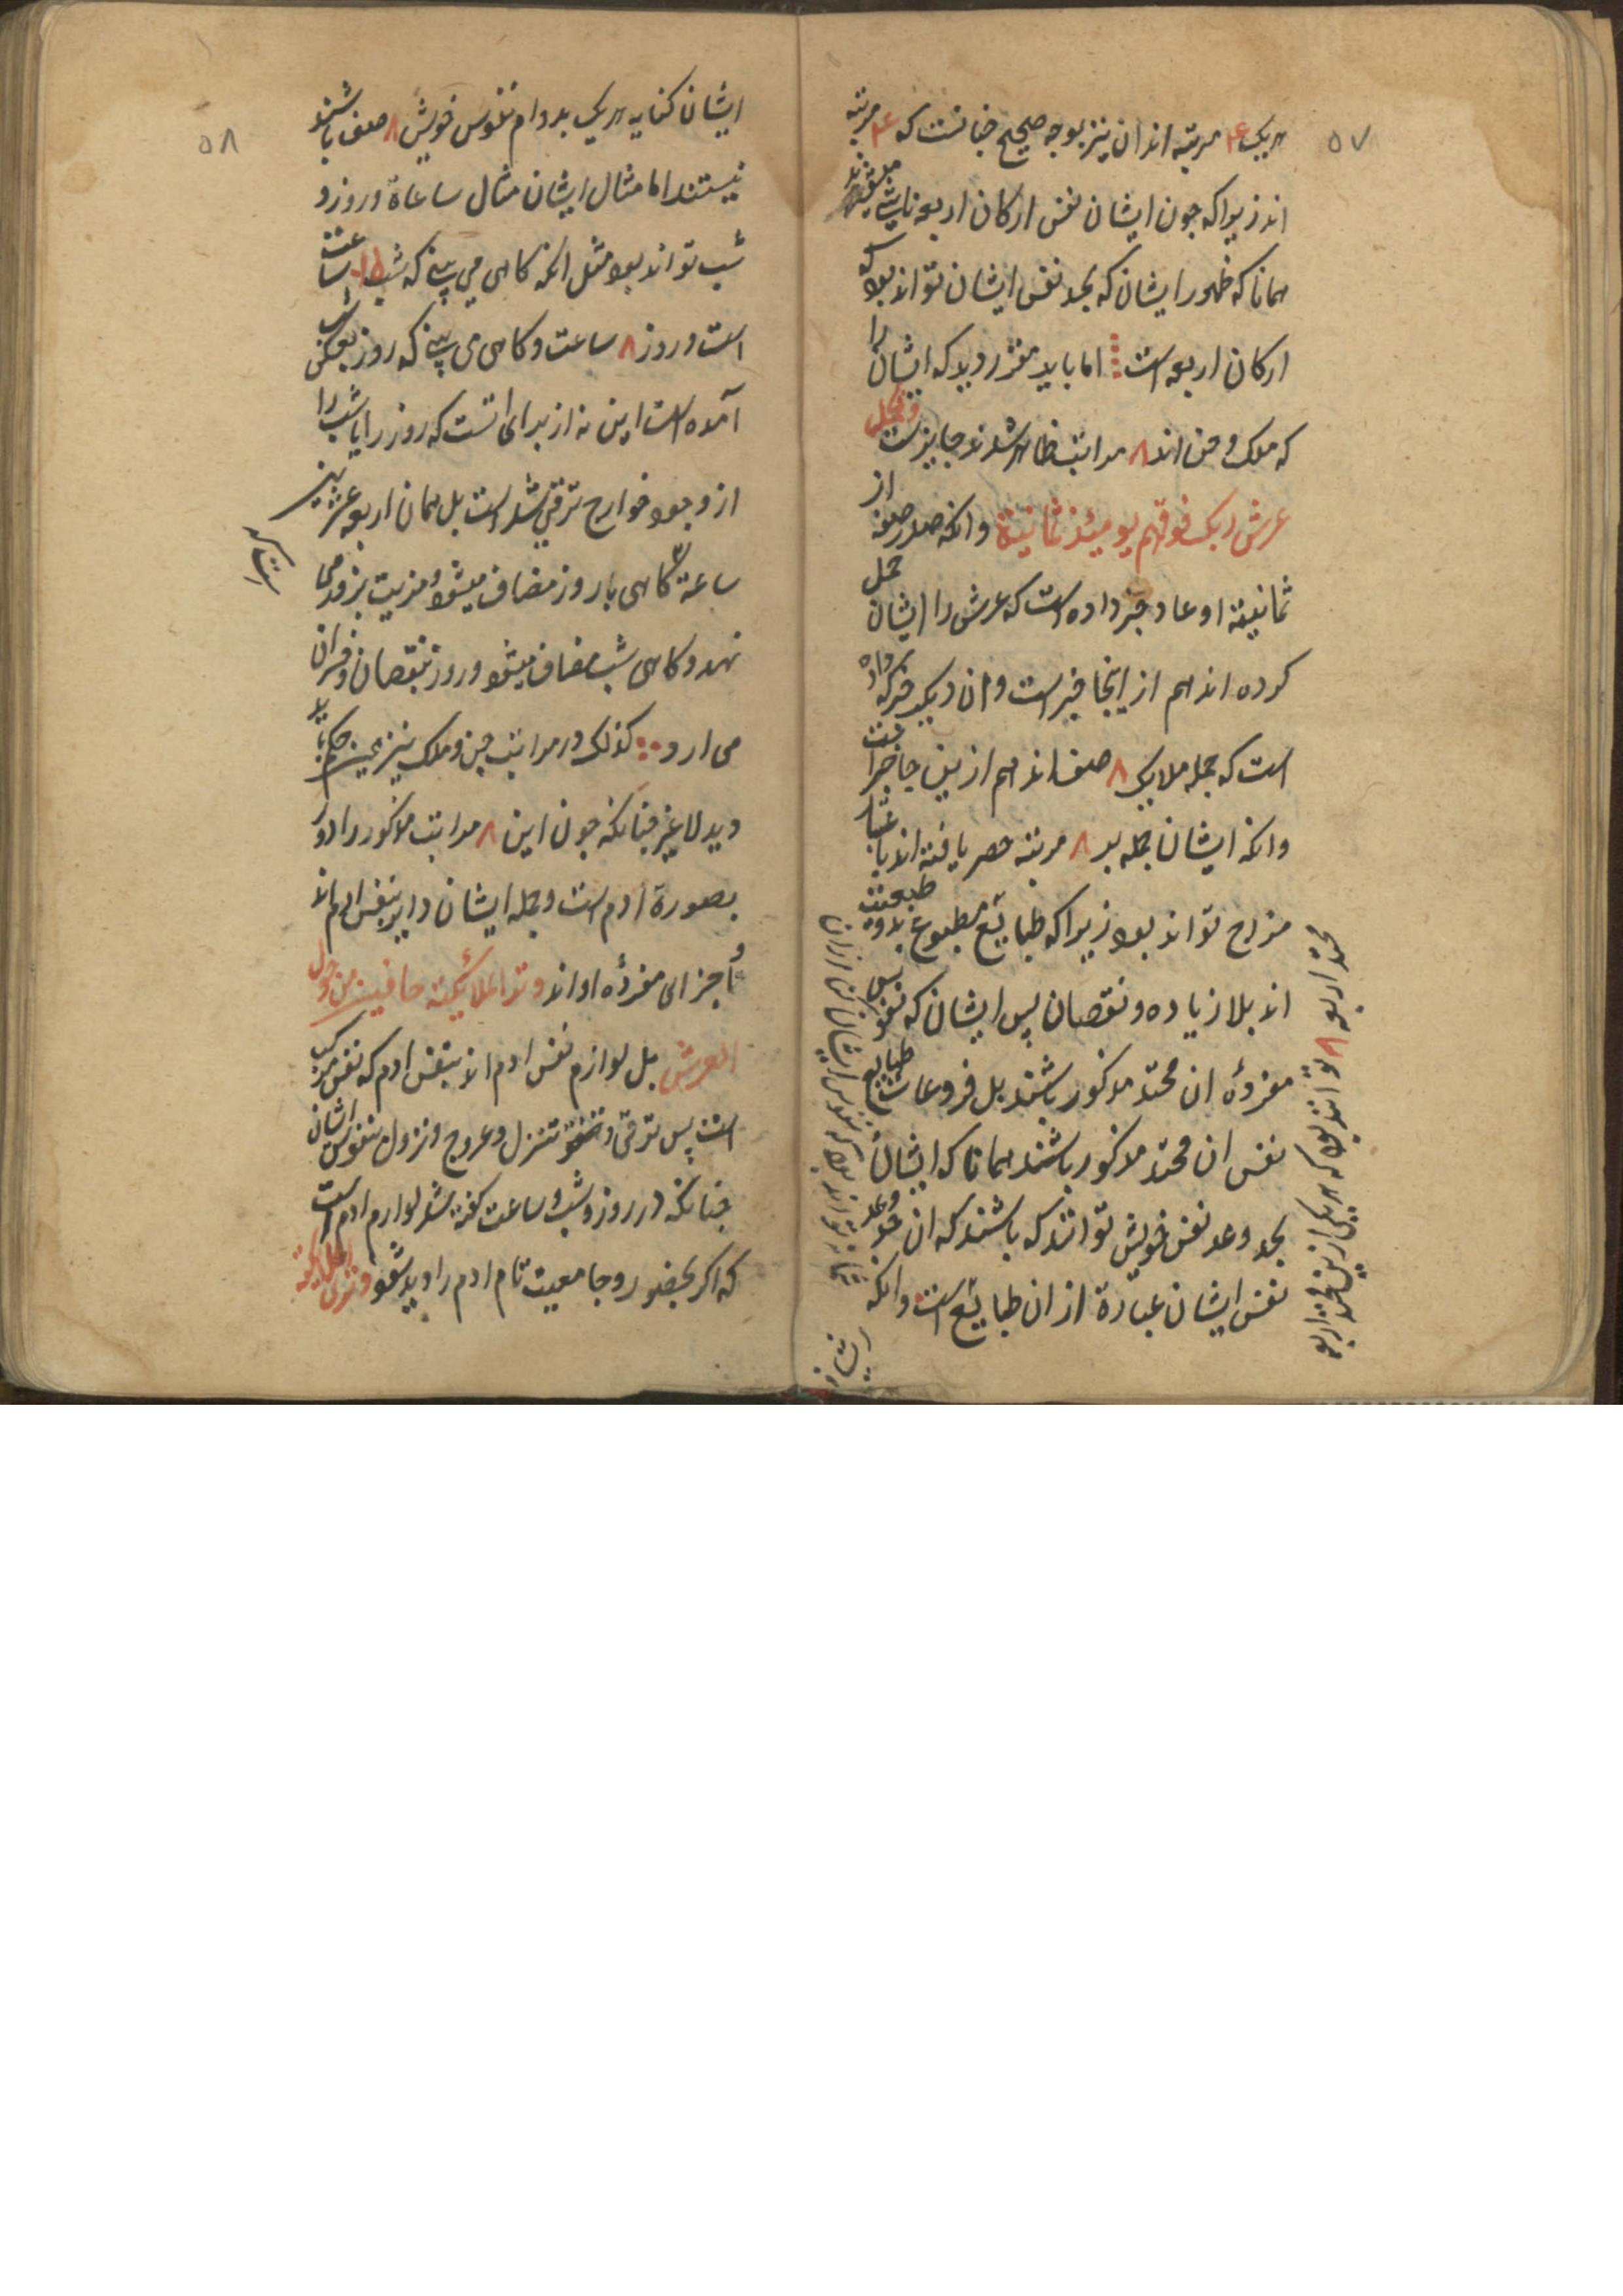 ۵۷
هریک ۴ مرتبه اند ان نیز بوجه صحیح چنانست که ۴ مرتبه
اند زیرا که چون ایشان نفس ارکان اربعه نابت
همانا که ظهور ایشان که بحد نفس ایشان تواند بود که
ارکان اربعه است اما باید مقرر دید که ایشان را
که ملک و جن اند ۸ مراتب ظاهر شدند جایزست و یحمل
عرش ربک فوقهم یومئذ ثمانیة وانکه صدر صفه از
ثمانیته او عاد خبر داده است که عرش را ایشان حمل
کرده اند هم از اینجا خبر است و ان دیگر خبر که داده
است که جمله ملایک ۸ صنف اند هم ازین جا خبر است
وانکه ایشان بجمله بر ۸ مرتبه حصر یافته اند باعتبار
مزاج تواند بود زیرا که طبایع مطبوع بدو طبیعت
اند بلا زیاده و نقصان پس ایشان که نفوس
مفردهٔ ان محتد مذکور باشند بل فروعات طبایع
نفس ان محتد مذکور باشند همانا که ایشان
بحد و عد نفس خویش توانند که باشند که ان حد و عد
نفس ایشان عبارة از ان طبایع است وانکه
ایشان
محتد اربعه ۸ توانند بود که هر یکی ازین محتد اربعه
۵۸
ایشان کنایه هریک بدوام نفوس خویش ۸ صنف باشند
نیستند اما مثال ایشان مثال ساعاة و روز و
شب تواند بود مثل انکه کاهی می بینی که شب ساعت
است و روز ۸ ساعت و کاهی می بینی که روز بعکس شب
آمده است این نه از برای انست که روز را یا شب را
از وجود خوارج ترقی شد است بل همان اربعه عشرین
ساعة کاهی با روز مضاف میشود و مزیت بروز می
نهد و کاهی شب مضاف میشود و روز بنقصان و خسران
می ارد کذلک در مراتب جن و ملک نیز همین حکم باید
دید لا غیر چنانکه چون این ۸ مراتب مذکور را دور
بصورة ادم است و جمله ایشان دایر بنفس ادم اند
و اجزای مفردهٔ او اند و تر الملائکة حافین من حول
العرش بل لوازم نفس ادم اند بنفس ادم که نفس مرکب
است پس ترقی و تنزل و عروج و نزول بنفوس ایشان
چنانکه در روز و شب و ساعت کفته شد لوازم ادم است
که اکر بحضور و جامعیت تام ادم را دید شود و تری الملایکة